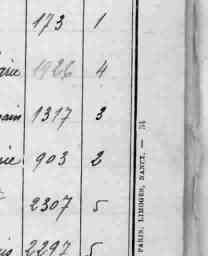 173 1
1926 4
1317 3
903 2
2307 5
2297 5
PARIS, LIMOGES, NANCY. — 34